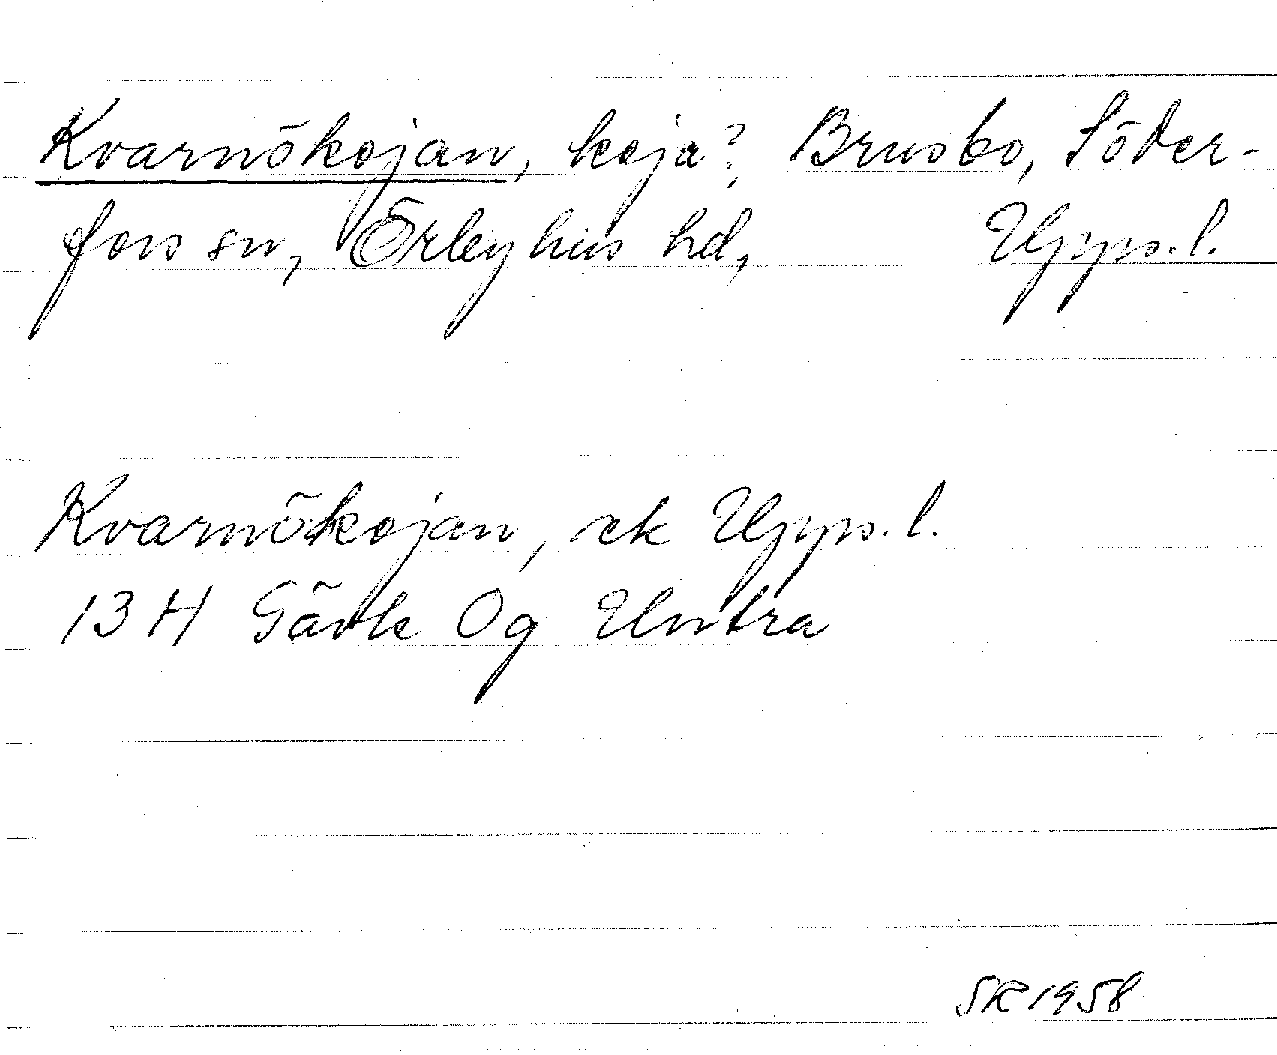 Kvarnökojan, koja?, Brusbo, Söder-
fors sn, Örbyhus hd, Upps.l.
Kvarnökojan, ek Upps.l.
13 H Gävle Og Untra
SR 1958